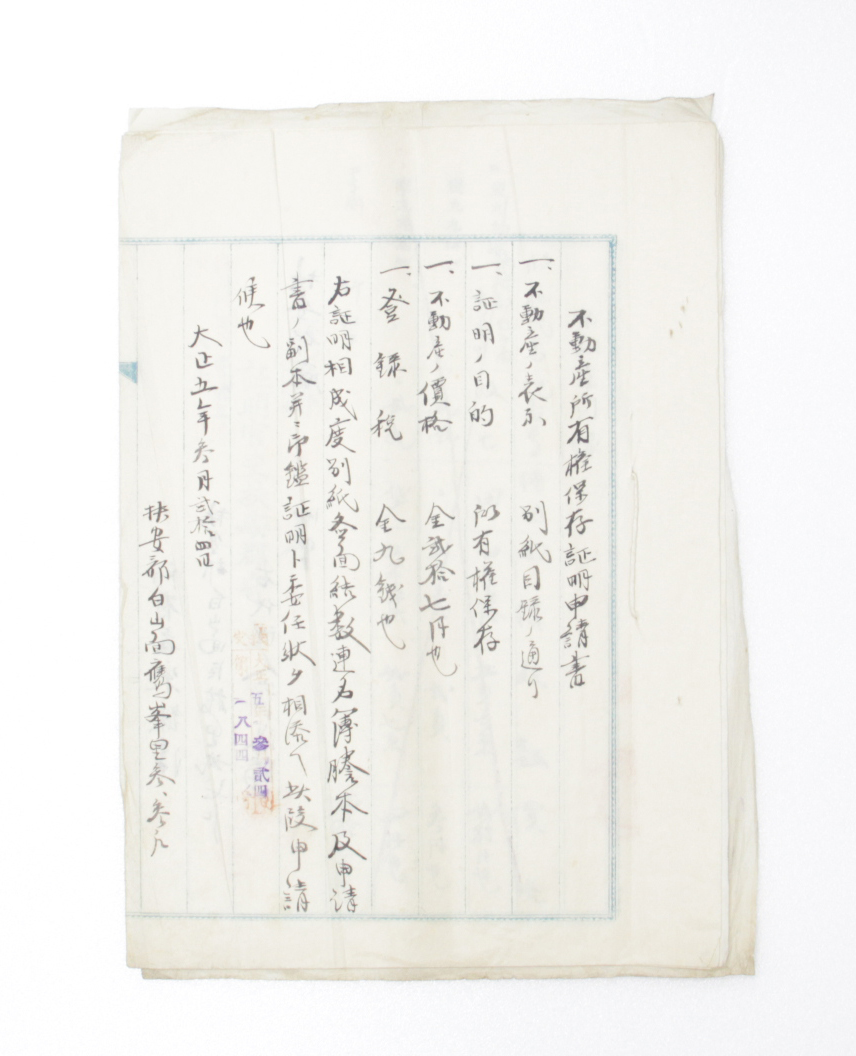 不動産所有權保存証明申請書
一、不動産ノ表示 別紙目録ノ通リ
一、証明ノ目的 所有權保存
一、不動産ノ價格 金弐拾七円也
一、登録税 金九銭也
右証明相成度別紙各面結数連名簿謄本及申請
書ノ副本并ニ印鑑証明ト委任状ヲ相添ヘ此段申請
候也
大正五年参月弐拾四日
扶安郡白山面鷹峯里参、参九
五 参 貳四
一八四四